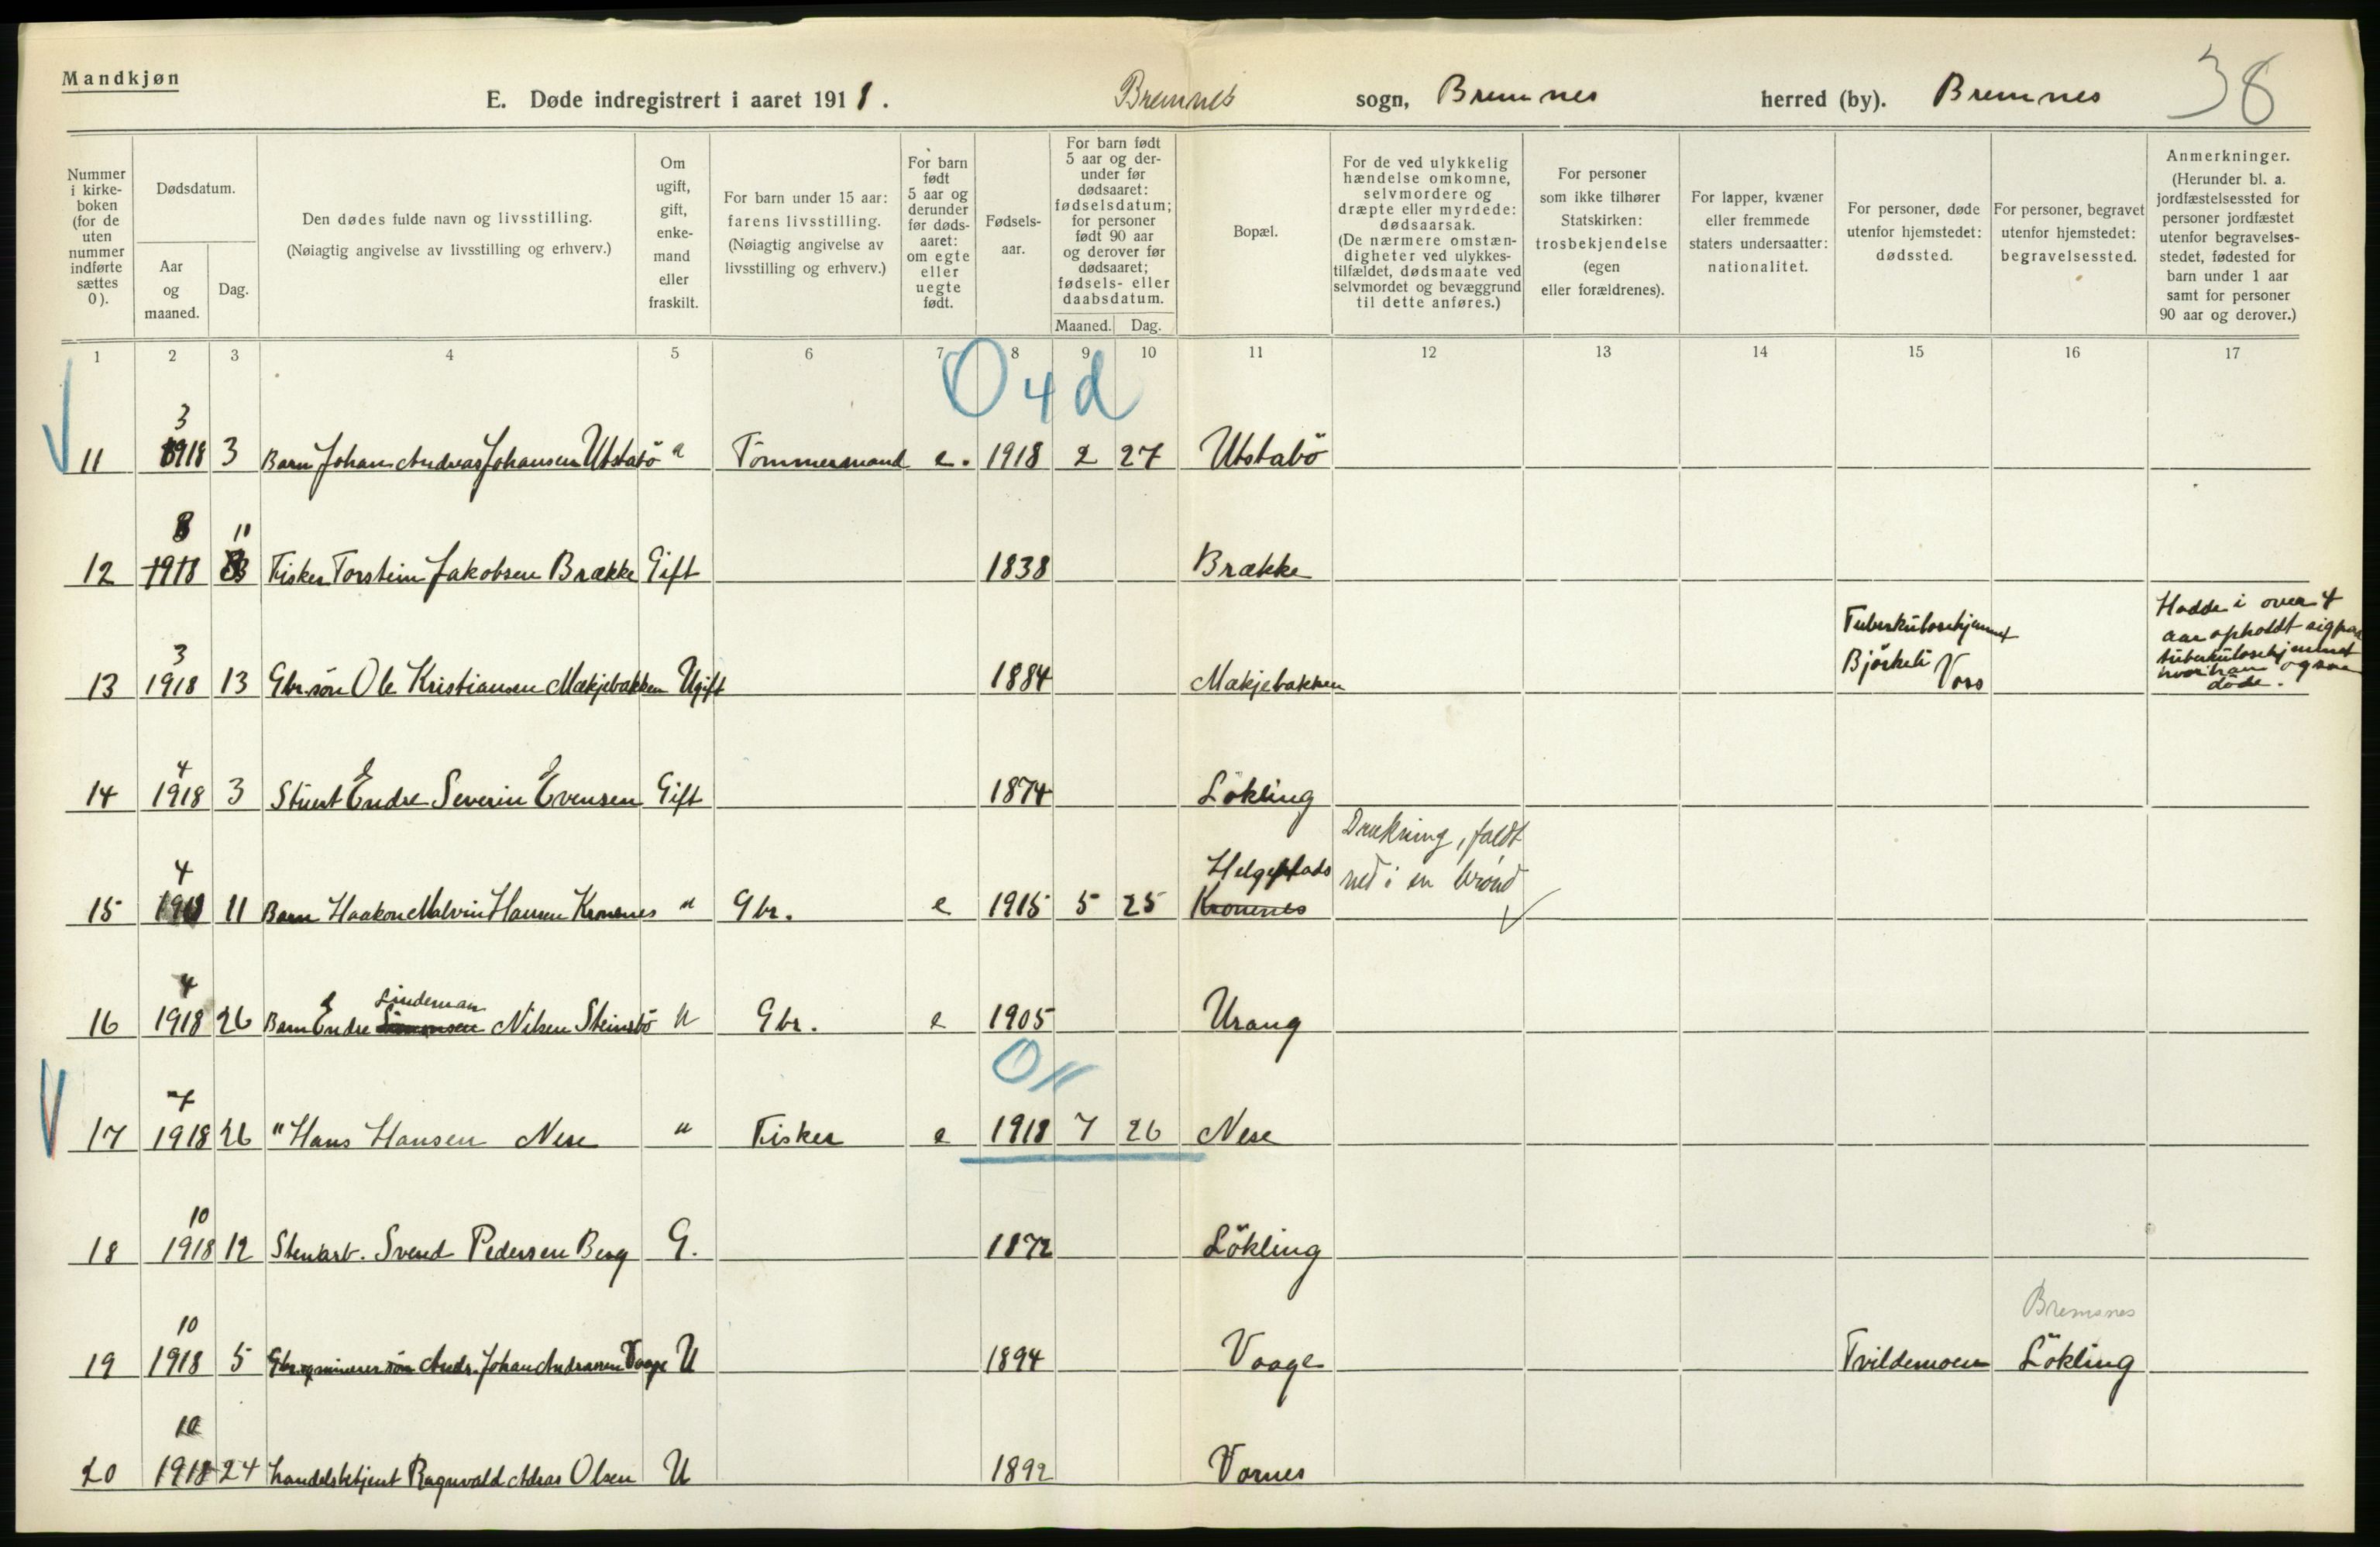 Mandkjøn
E. Døde indregistrert i aaret 1918. Bremnes sogn, Bremnes herred (by). Bremnes 38
Nummer i kirke-boken (for de uten nummer indførte sættes 0).
Dødsdatum.
Aar og maaned.
Dag.
Den dødes fulde navn og livsstilling.
(Nøiagtig angivelse av livsstilling og erhverv.)
Om ugift, gift, enke-mand eller fraskilt.
For barn under 15 aar: farens livsstilling. (Nøiagtig angivelse av livsstilling og erhverv.)
For barn født 5 aar og derunder før døds-aaret: om egte eller uegte født.
Fødsels-aar.
For barn født 5 aar og der-under før dødsaaret: fødselsdatum; for personer født 90 aar og derover før dødsaaret; fødsels- eller daabsdatum.
Maaned. Dag.
Bopæl.
For de ved ulykkelig hændelse omkomne, selvmordere og dræpte eller myrdede: dødsaarsak. (De nærmere omstæn-digheter ved ulykkes-tilfældet, dødsmaate ved selvmordet og bevæggrund til dette anføres.)
For personer som ikke tilhører Statskirken: trosbekjendelse (egen eller forældrenes).
For lapper, kvæner eller fremmede staters undersaatter: nationalitet.
For personer, døde utenfor hjemstedet: dødssted.
For personer, begravet utenfor hjemstedet: begravelsessted.
Anmerkninger. (Herunder bl. a. jordfæstelsessted for personer jordfæstet utenfor begravelses-stedet, fødested for barn under 1 aar samt for personer 90 aar og derover.)
1 2 3 4 5 6 7 8 9 10 11 12 13 14 15 16 17
O 4 d
3
11 1918 3 Barn Johan Andreas Johansen Utstabö " Tömmermand e. 1918 2 27 Utstabö
11
12 1918 Fisker Torstein Jakobsen Brække Gift 1838 Brække
3
13 1918 13 Gbr.sön Ole Kristiansen Mækjebakken Ugift 1884 Mækjebakken
Tuberkulosehjemmet
Björkeli Voss
Hadde i over 4
aar opholdt sig paa
tuberkulosehjemmet
hvor han ogsaa
döde.
4
14 1918 3 Endre Severin Evensen Gift 1874 Lökling
4
15 1918 11 Barn Haakon Malvin Hansen Kronenes " Gbr. e 1915 5 25 Kronenes
Helgeplads
Drukning, faldt
ned i en brönd
4
Lindeman
16 1918 26 Barn Endre Simonsen Nilsen Steinsbö u Gbr. e 1905 Urang
O //
7
17 1918 26 " Hans Hansen Nese " Fisker e 1918 7 26 Nese
10
18 1918 12 Stenarb. Svend Pedersen Berg G. 1872 Lökling
10
Bremsnes
19 1918 5 Gbr. og minerer sön Andr. Johan Andreasen Vaage U 1894 Vaage Tvildemoen Lökling
10
20 1918 24 Handelsbetjent Ragnvald Adras Olsen U 1892 Vornes